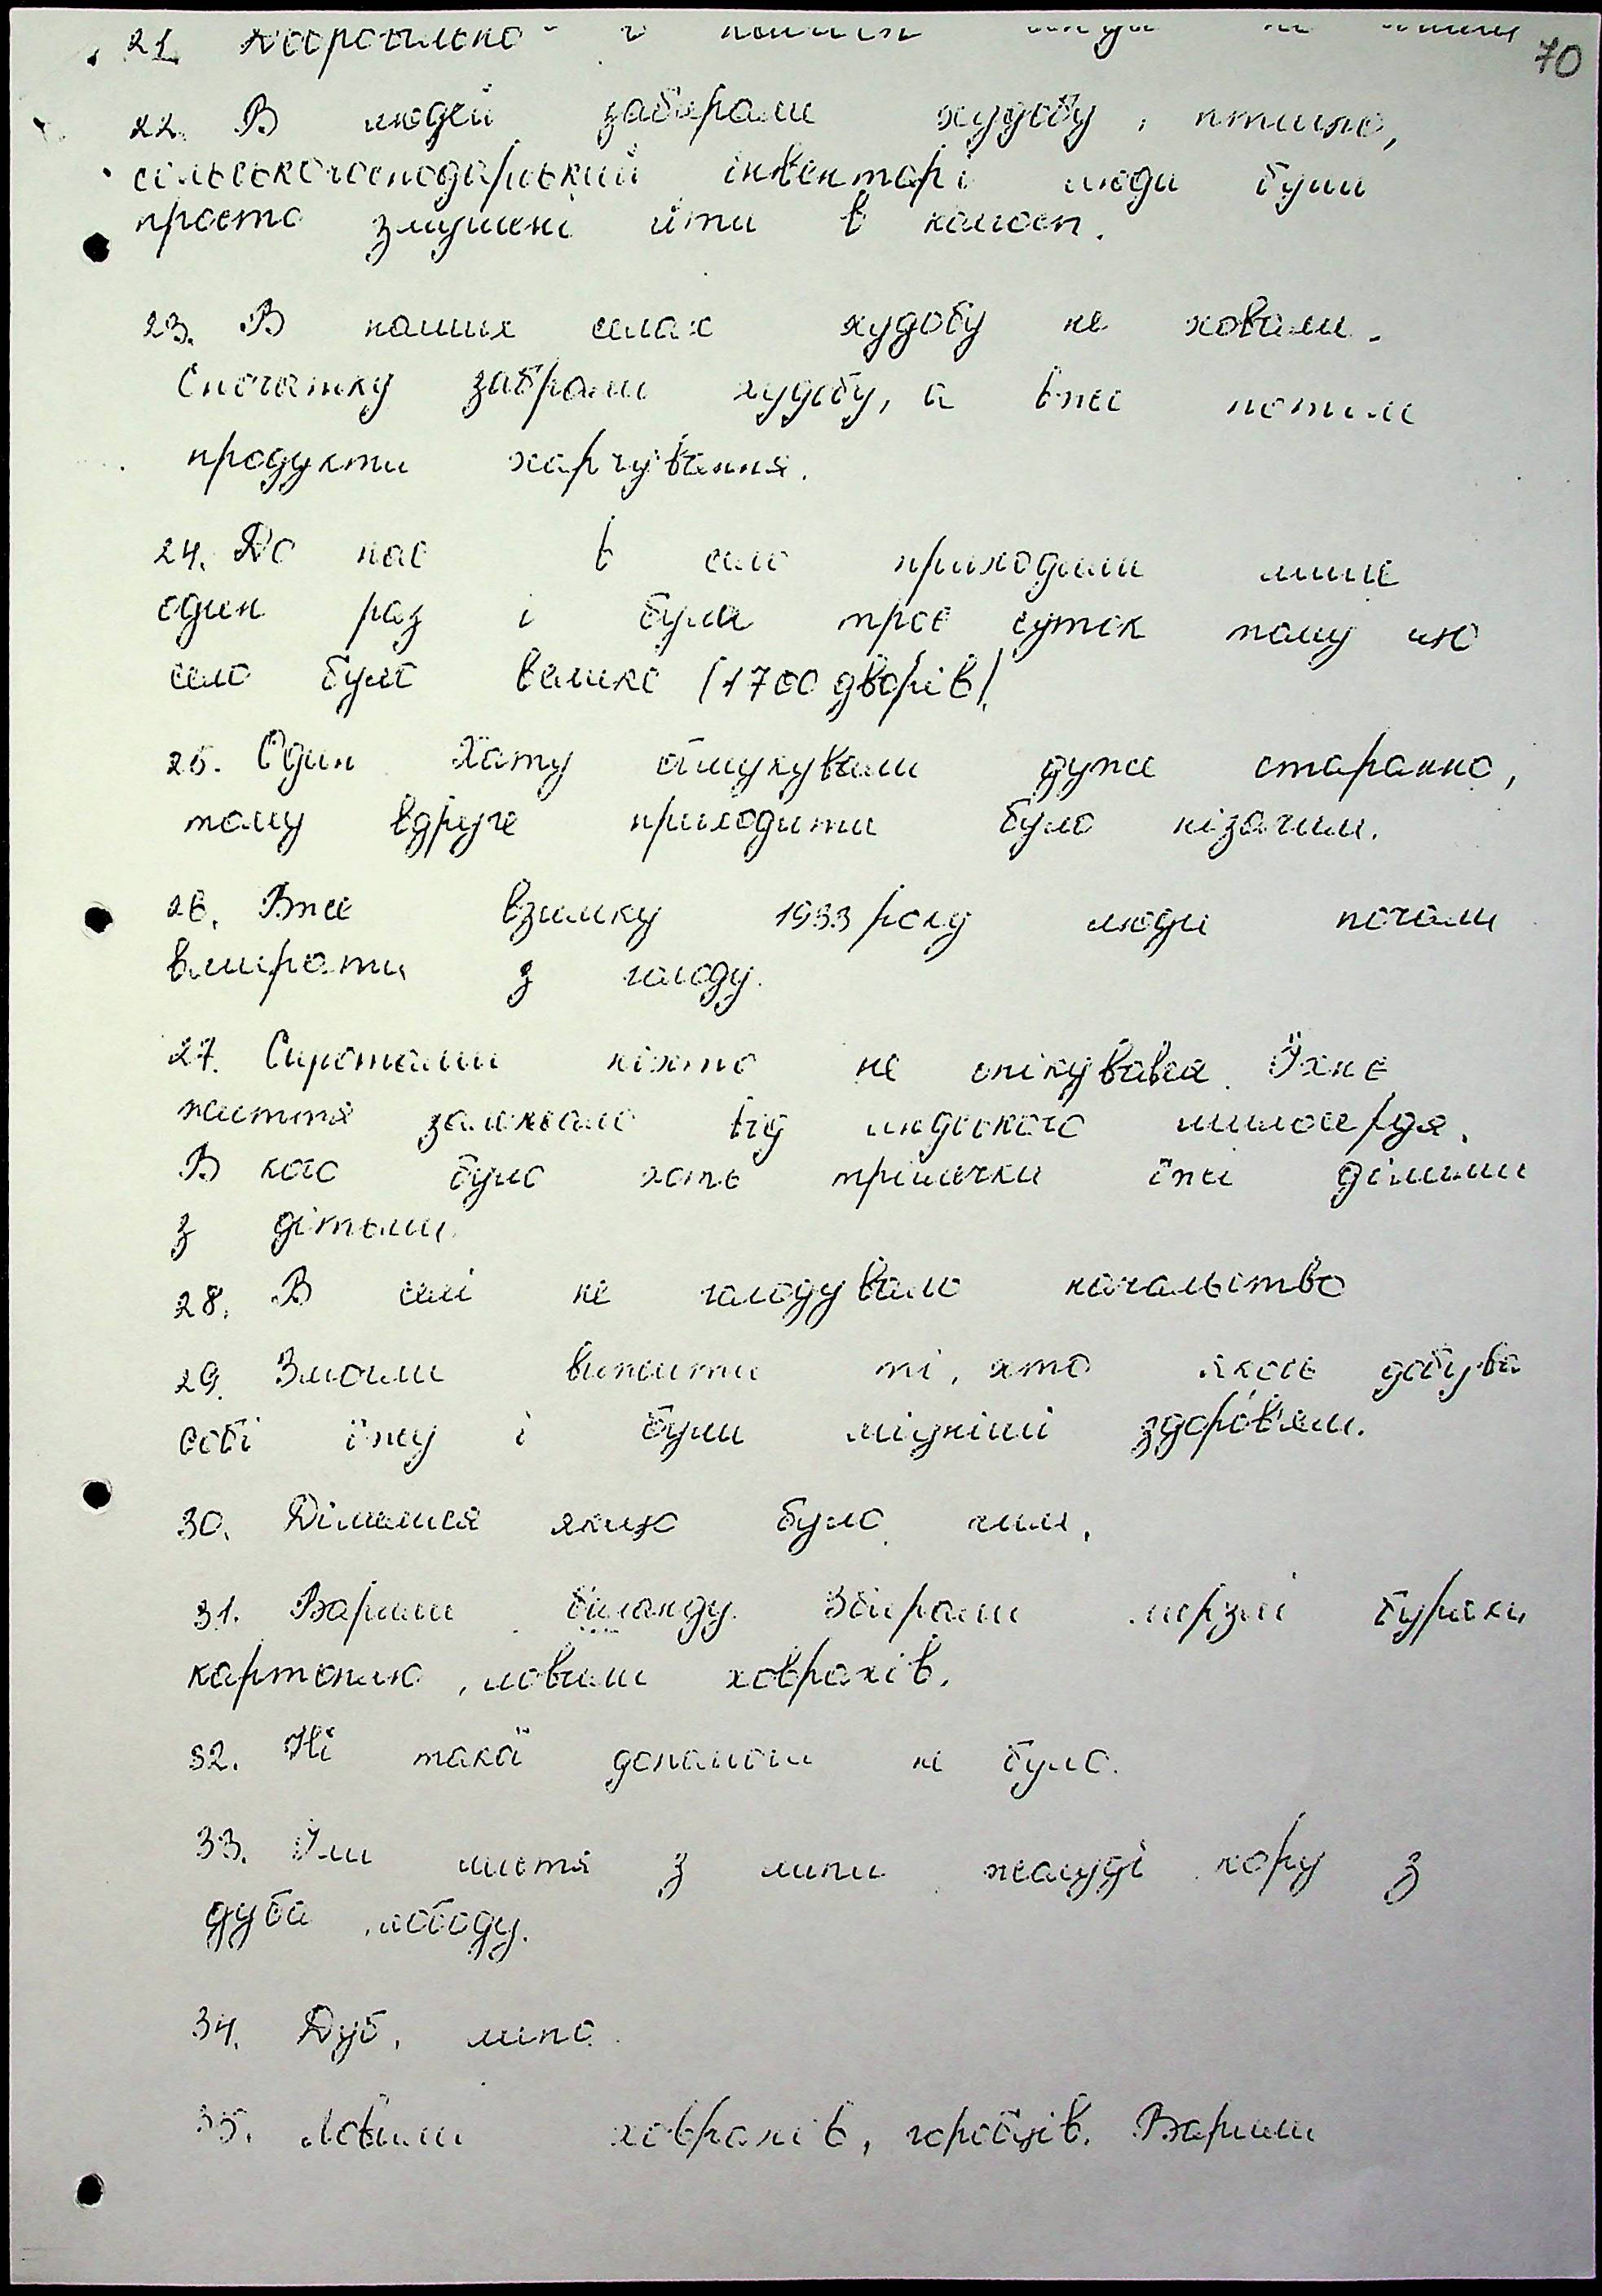 70
21. Добровільно в
22. В людей забирали худобу, птицю,
сільськогосподарський інвентарі люди були
просто змушені йти в колгосп.
23. В наших селах худобу не ховали.
Спочатку забрали худобу, а вже потім
продукти харчування.
24. До нас в село приходили лише
один раз і були троє суток тому що
село було велике (1700 дворів).
25. Один хату обшукували дуже старанно,
тому вдруге приходити було нізачим.
26. Вже взимку 1933 року люди почали
вмирати з голоду.
27. Сиротами ніхто не опікувався. Їхнє
життя залежало від людського милосердя.
В кого було хоть трішечки їжі ділили
з дітьми.
28. В селі не голодувало начальство
29. Змогли вижити ті, хто якось добува
собі їжу і були міцніші здоров'ям.
30. Ділилися якщо було чим.
31. Варили баланду. Збирали мерзлі буряки
картоплю, ловили ховрахів.
32. Ні такої допомоги не було.
33. Їли листя з липи жолуді кору з
дуба лободу.
34. Дуб, липа.
35. Ловили ховрахів, горобців. Варили